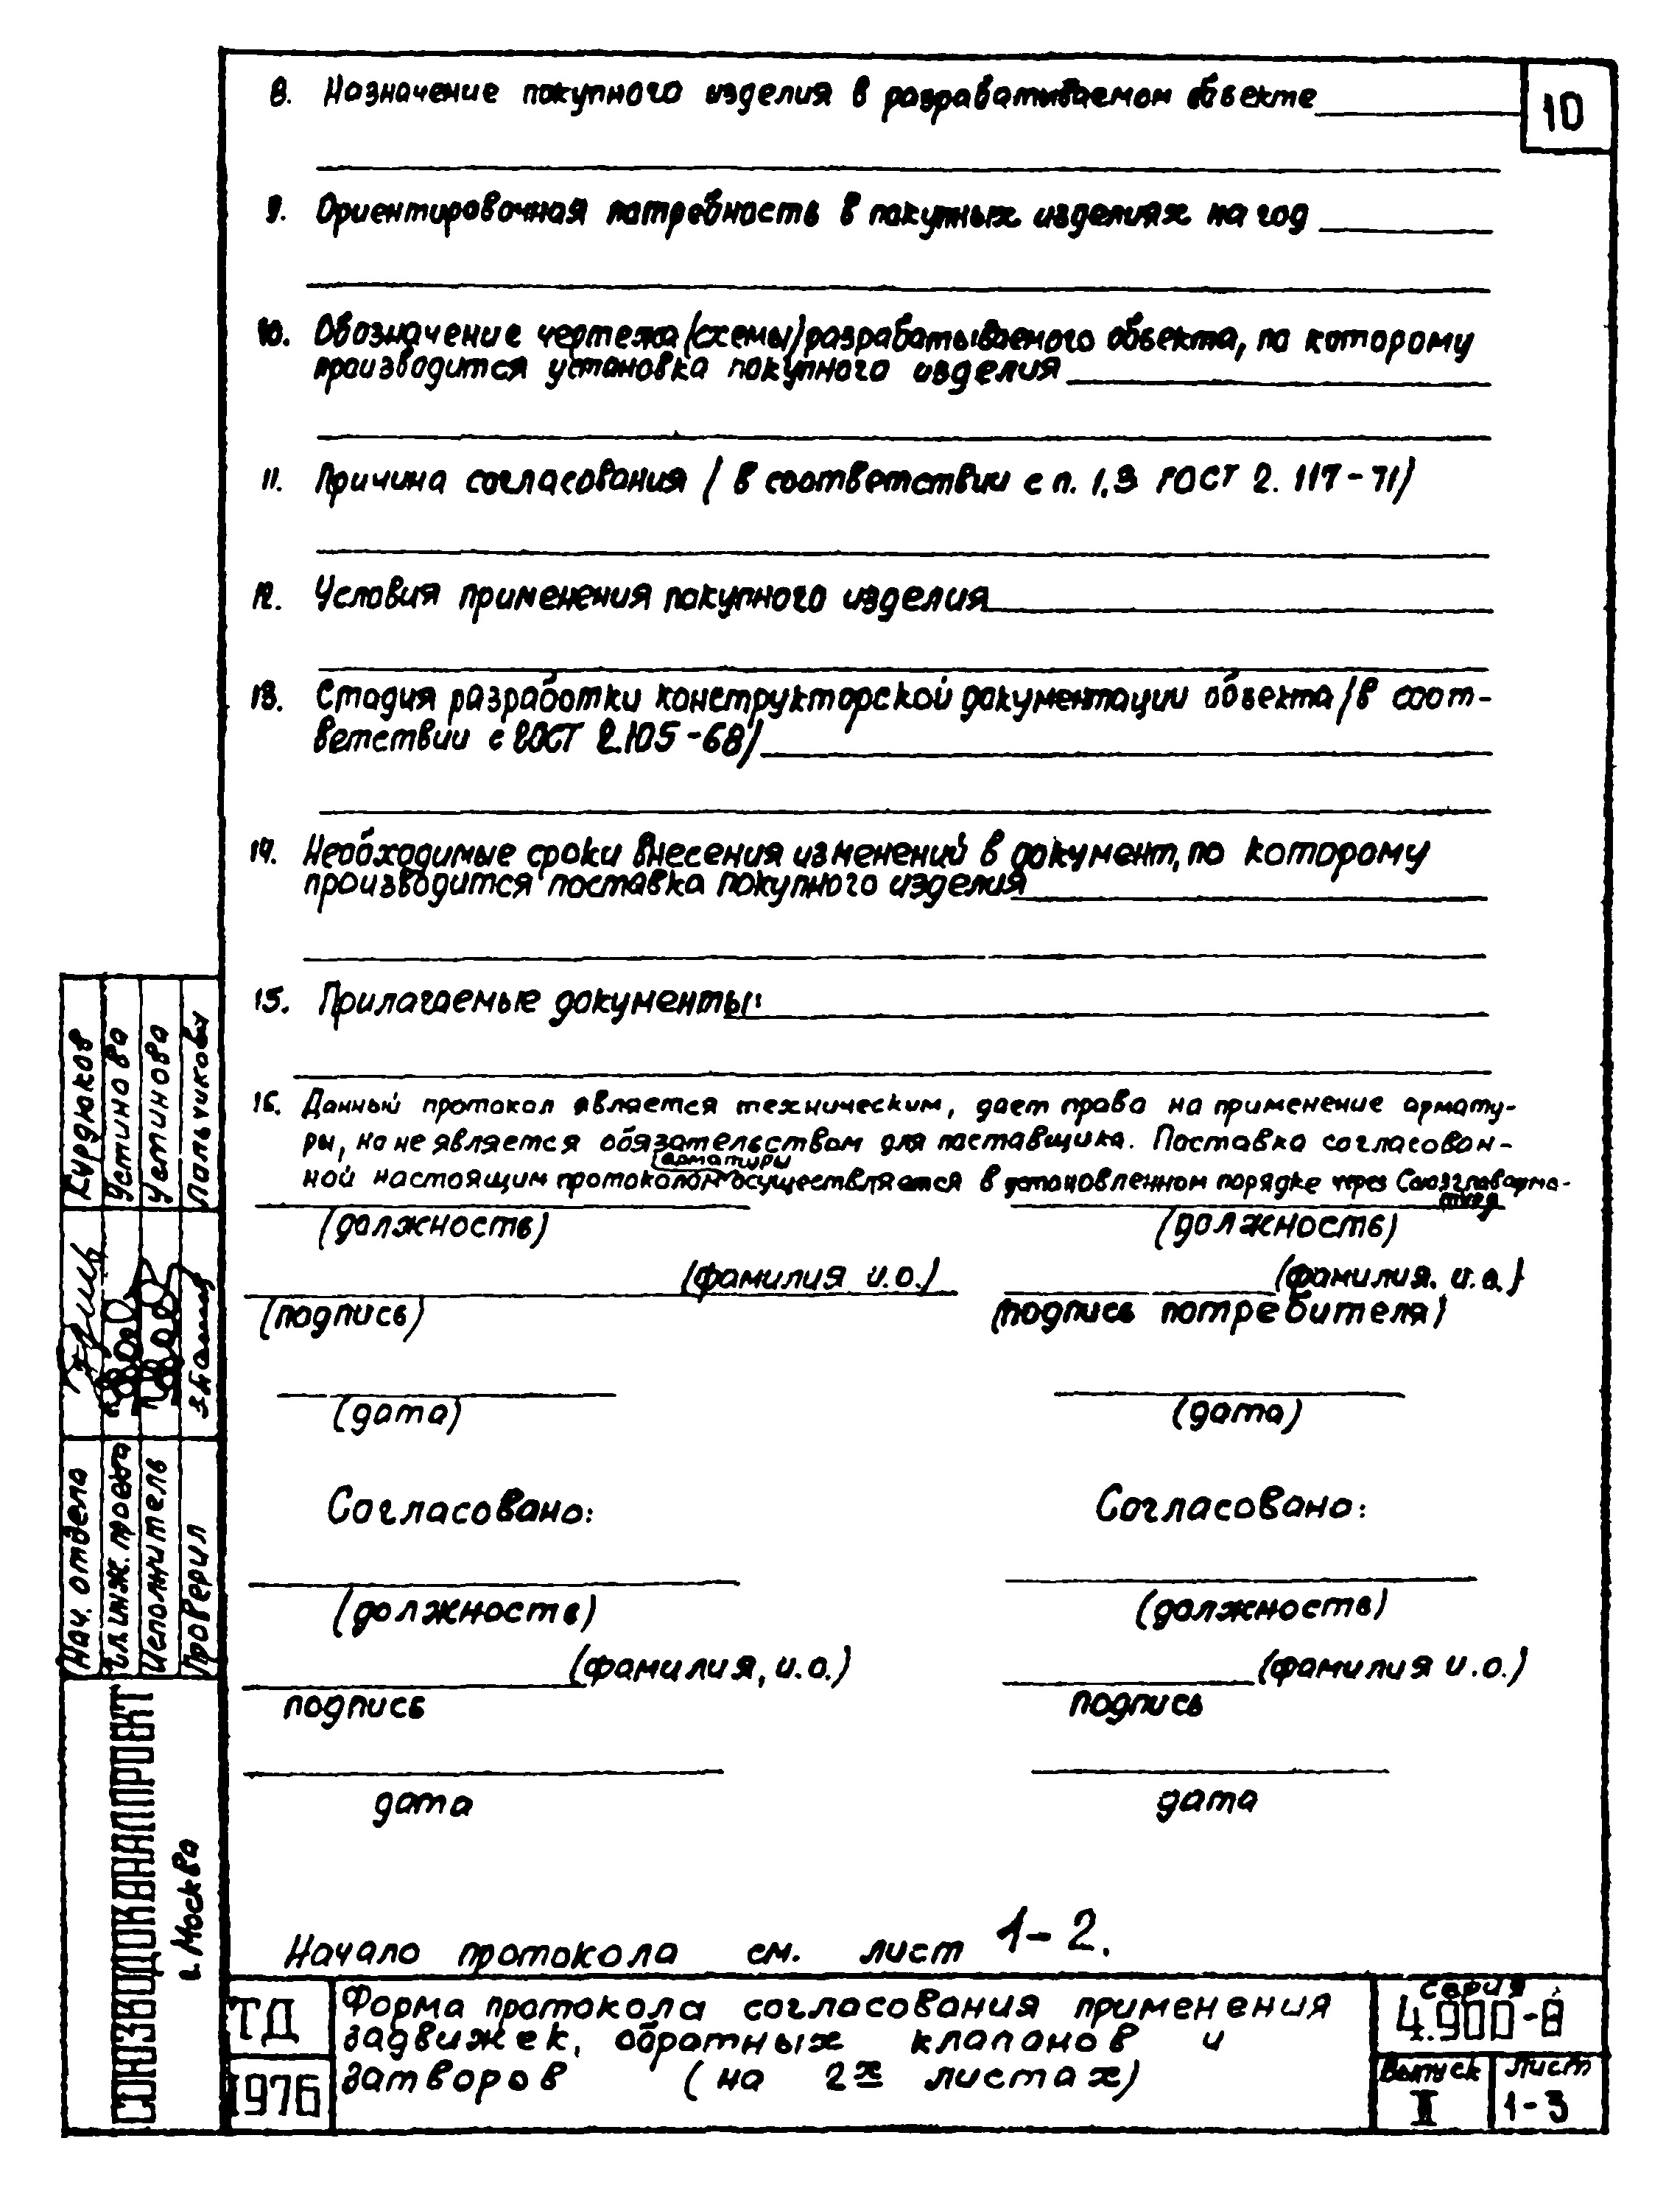 10
8. Назначение покупного изделия в разрабатываемом объекте
9. Ориентировочная потребность в покупных изделиях на год
10. Обозначение чертежа (схемы) разрабатываемого объекта, по которому
производится установка покупного изделия
11. Причина согласования / в соответствии с п. 1.3 ГОСТ 2.117-71/
12. Условия применения покупного изделия
13. Стадия разработки конструкторской документации объекта /в соот-
ветствии с ГОСТ 2.105-68/
14. Необходимые сроки внесения изменений в документ, по которому
производится поставка покупного изделия
15. Прилагаемые документы:
16. Данный протокол является техническим, дает право на применение армату-
ры, но не является обязательством для поставщика. Поставка согласован-
арматуры
ной настоящим протоколом осуществляется в установленном порядке через Союзглаварма-
тура
(должность) (должность)
(фамилия и.о.) (фамилия. и.о.)
(подпись) (подпись потребителя)
(дата) (дата)
Согласовано: Согласовано:
(должность) (должность)
(фамилия, и.о.) (фамилия и.о.)
подпись подпись
дата дата
Начало протокола см. лист 1-2.
ТД
1976
Форма протокола согласования применения
задвижек, обратных клапанов и
затворов (на 2х листах)
серия
4.900-8
Выпуск Лист
II 1-3
Нач. отдела Курдюков
Гл. инж. проекта Устинова
Исполнитель Устинова
Проверил Пальчикова
СОЮЗВОДОКАНАЛПРОЕКТ
г. Москва